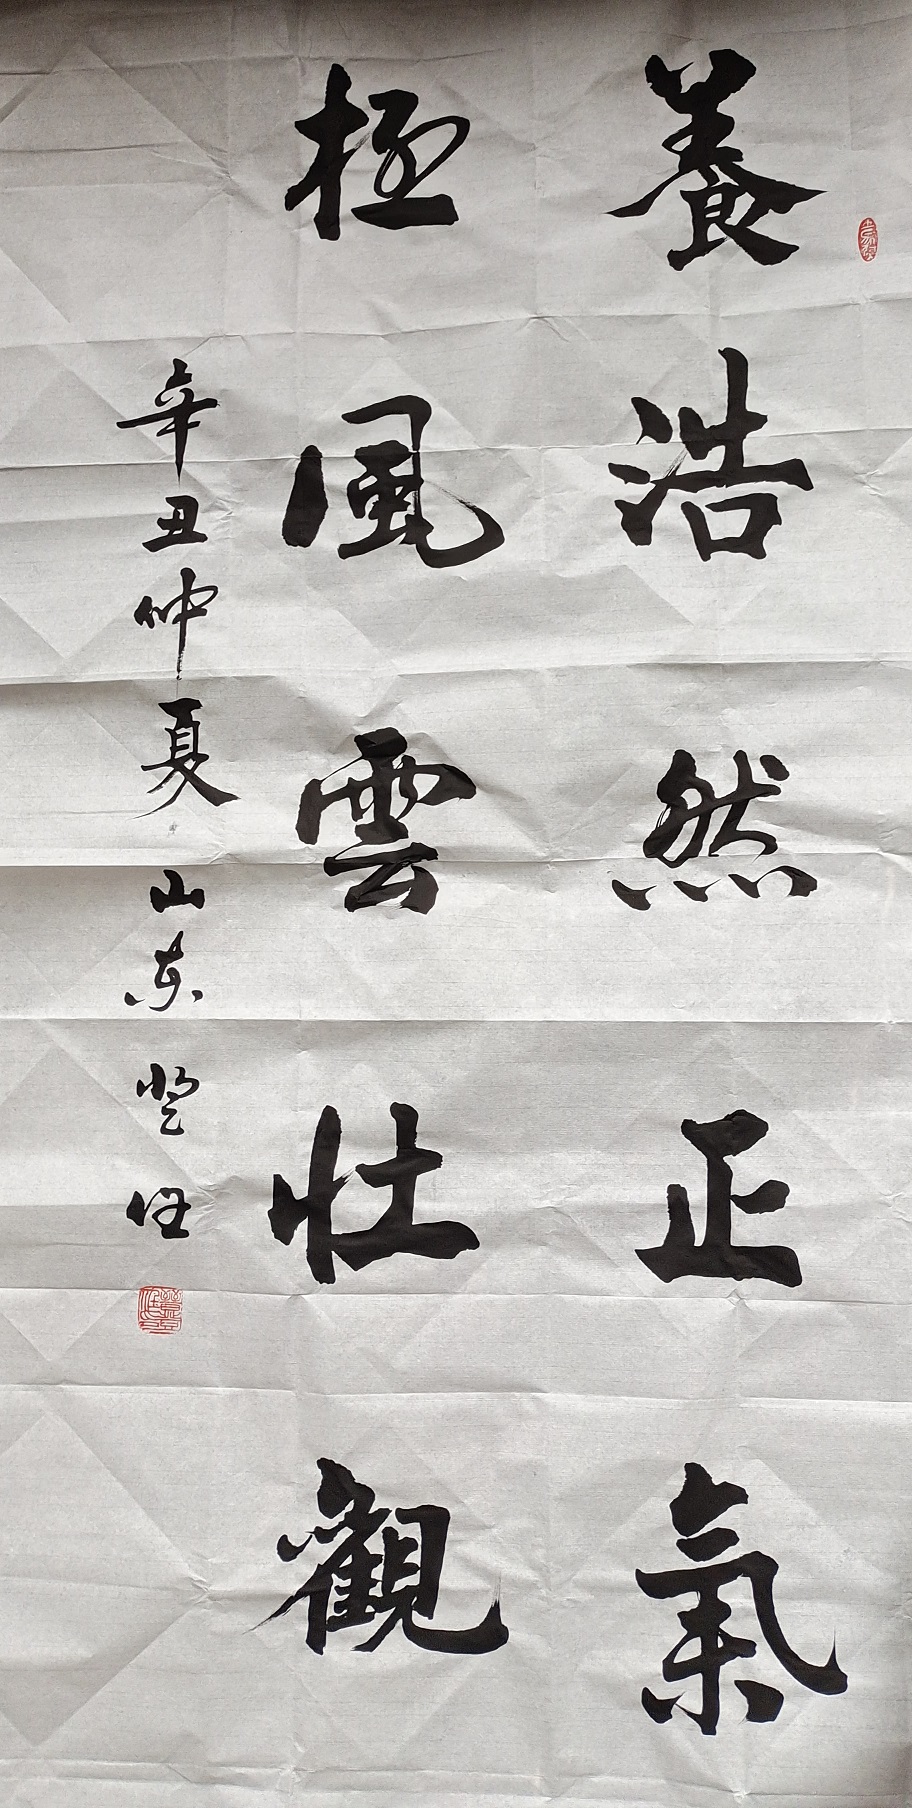 養浩然正氣
極風雲壯觀
辛丑仲夏 山东